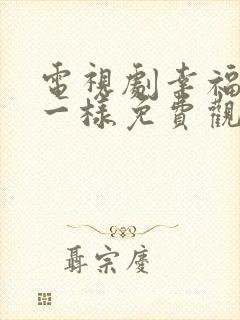 電視劇幸福
一樣免費觀
聶宗慶